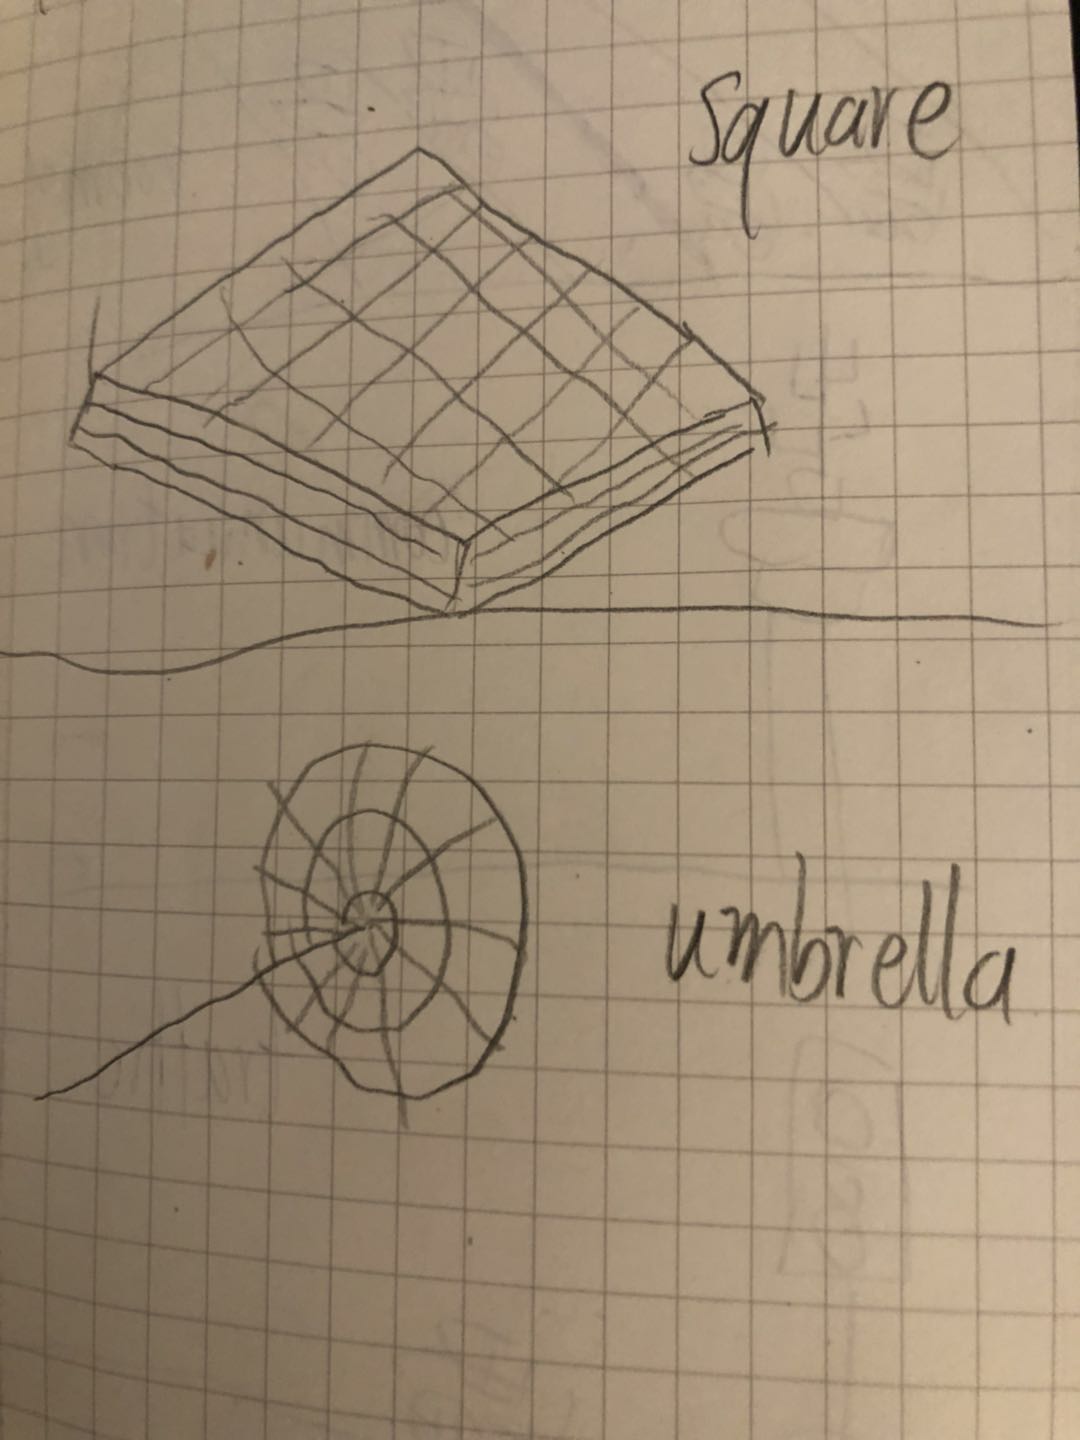 Square
umbrella